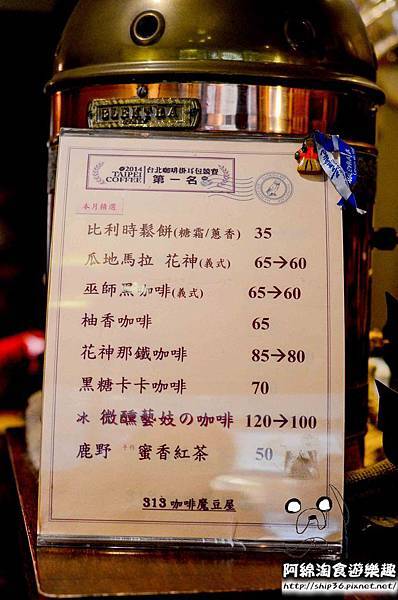 ELEKTRA
@2014 TAIPEI COFFEE 台北咖啡掛耳包競賽 第一名
本月精選
比利時鬆餅(糖霜/蔥香) 35
瓜地馬拉 花神(義式) 65→60
巫師黑咖啡(義式) 65→60
柚香咖啡 65
花神那鐵咖啡 85→80
黑糖卡卡咖啡 70
冰 微醺藝妓の咖啡 120→100
鹿野 蜜香紅茶 50
313咖啡魔豆屋
阿綿淘食遊樂趣
http://ship36.pixnet.net/blog